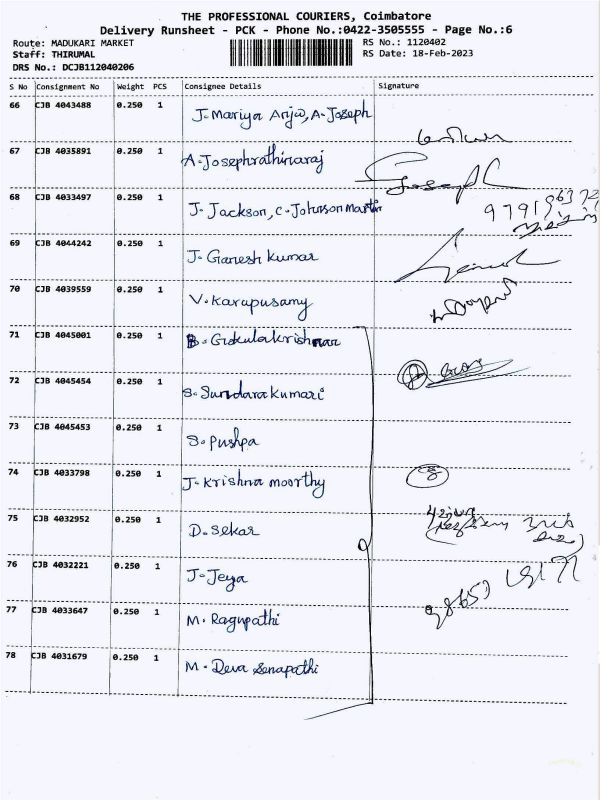 THE PROFESSIONAL COURIERS, Coimbatore
Delivery Runsheet - PCK - Phone No.:0422-3505555 - Page No.:6
Route: MADUKARI MARKET
Staff: THIRUMAL
DRS No.: DCJB112040206
RS No.: 1120402
RS Date: 18-Feb-2023
S No Consignment No Weight PCS Consignee Details Signature
66 CJB 4043488 0.250 1 J. Mariya Arijo, A. Joseph
67 CJB 4035891 0.250 1 A. Josephrathinaraj
Joseph
68 CJB 4033497 0.250 1 J. Jackson, C. Johnson martin
69 CJB 4044242 0.250 1 J. Ganesh kumar
70 CJB 4039559 0.250 1 V. Karapusamy
71 CJB 4045001 0.250 1 B. Gokulakrishnan
72 CJB 4045454 0.250 1 S. Sundarakumari
73 CJB 4045453 0.250 1 S. Pushpa
74 CJB 4033798 0.250 1 J. Krishna moorthy
75 CJB 4032952 0.250 1 D. Sekar
76 CJB 4032221 0.250 1 J. Jeya
77 CJB 4033647 0.250 1 M. Ragupathi
78 CJB 4031679 0.250 1 M. Deva Senapathi